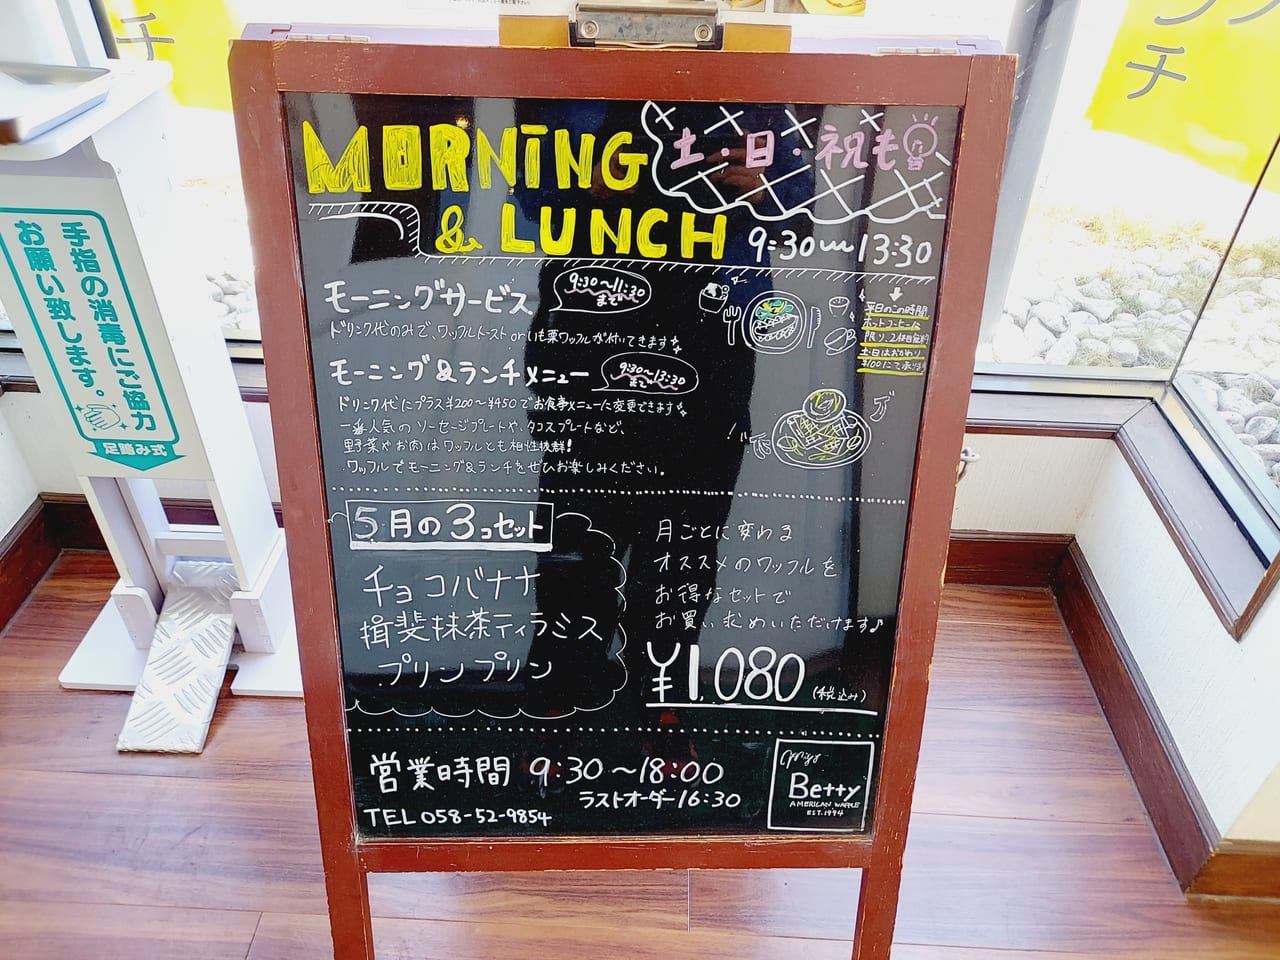 MORNING
& LUNCH
土・日・祝も
9:30〜13:30
モーニングサービス
9:30〜11:30
まで
ドリンク代のみで、ワッフルトースト orいも栗ワッフルが付いてきます
平日のこの時間
ホットコーヒーに
限り、2杯目無料
土日はおかわり
¥100にて承ります
モーニング&ランチメニュー
9:30〜13:30
まで
ドリンク代にプラス¥200〜¥450でお食事メニューに変更できます
一番人気のソーセージプレートや、タコスプレートなど、
野菜やお肉はワッフルとも相性抜群!
ワッフルでモーニング&ランチをぜひお楽しみください。
5月の3コセット
チョコバナナ
揖斐抹茶ティラミス
プリンプリン
月ごとに変わる
オススメのワッフルを
お得なセットで
お買い求めいただけます♪
¥1,080(税込み)
営業時間 9:30〜18:00
ラストオーダー16:30
TEL 058-52-9854
Betty
AMERICAN WAFFLE
EST.1994
手指の消毒にご協力
お願い致します。
足踏み式
チ
ンチ